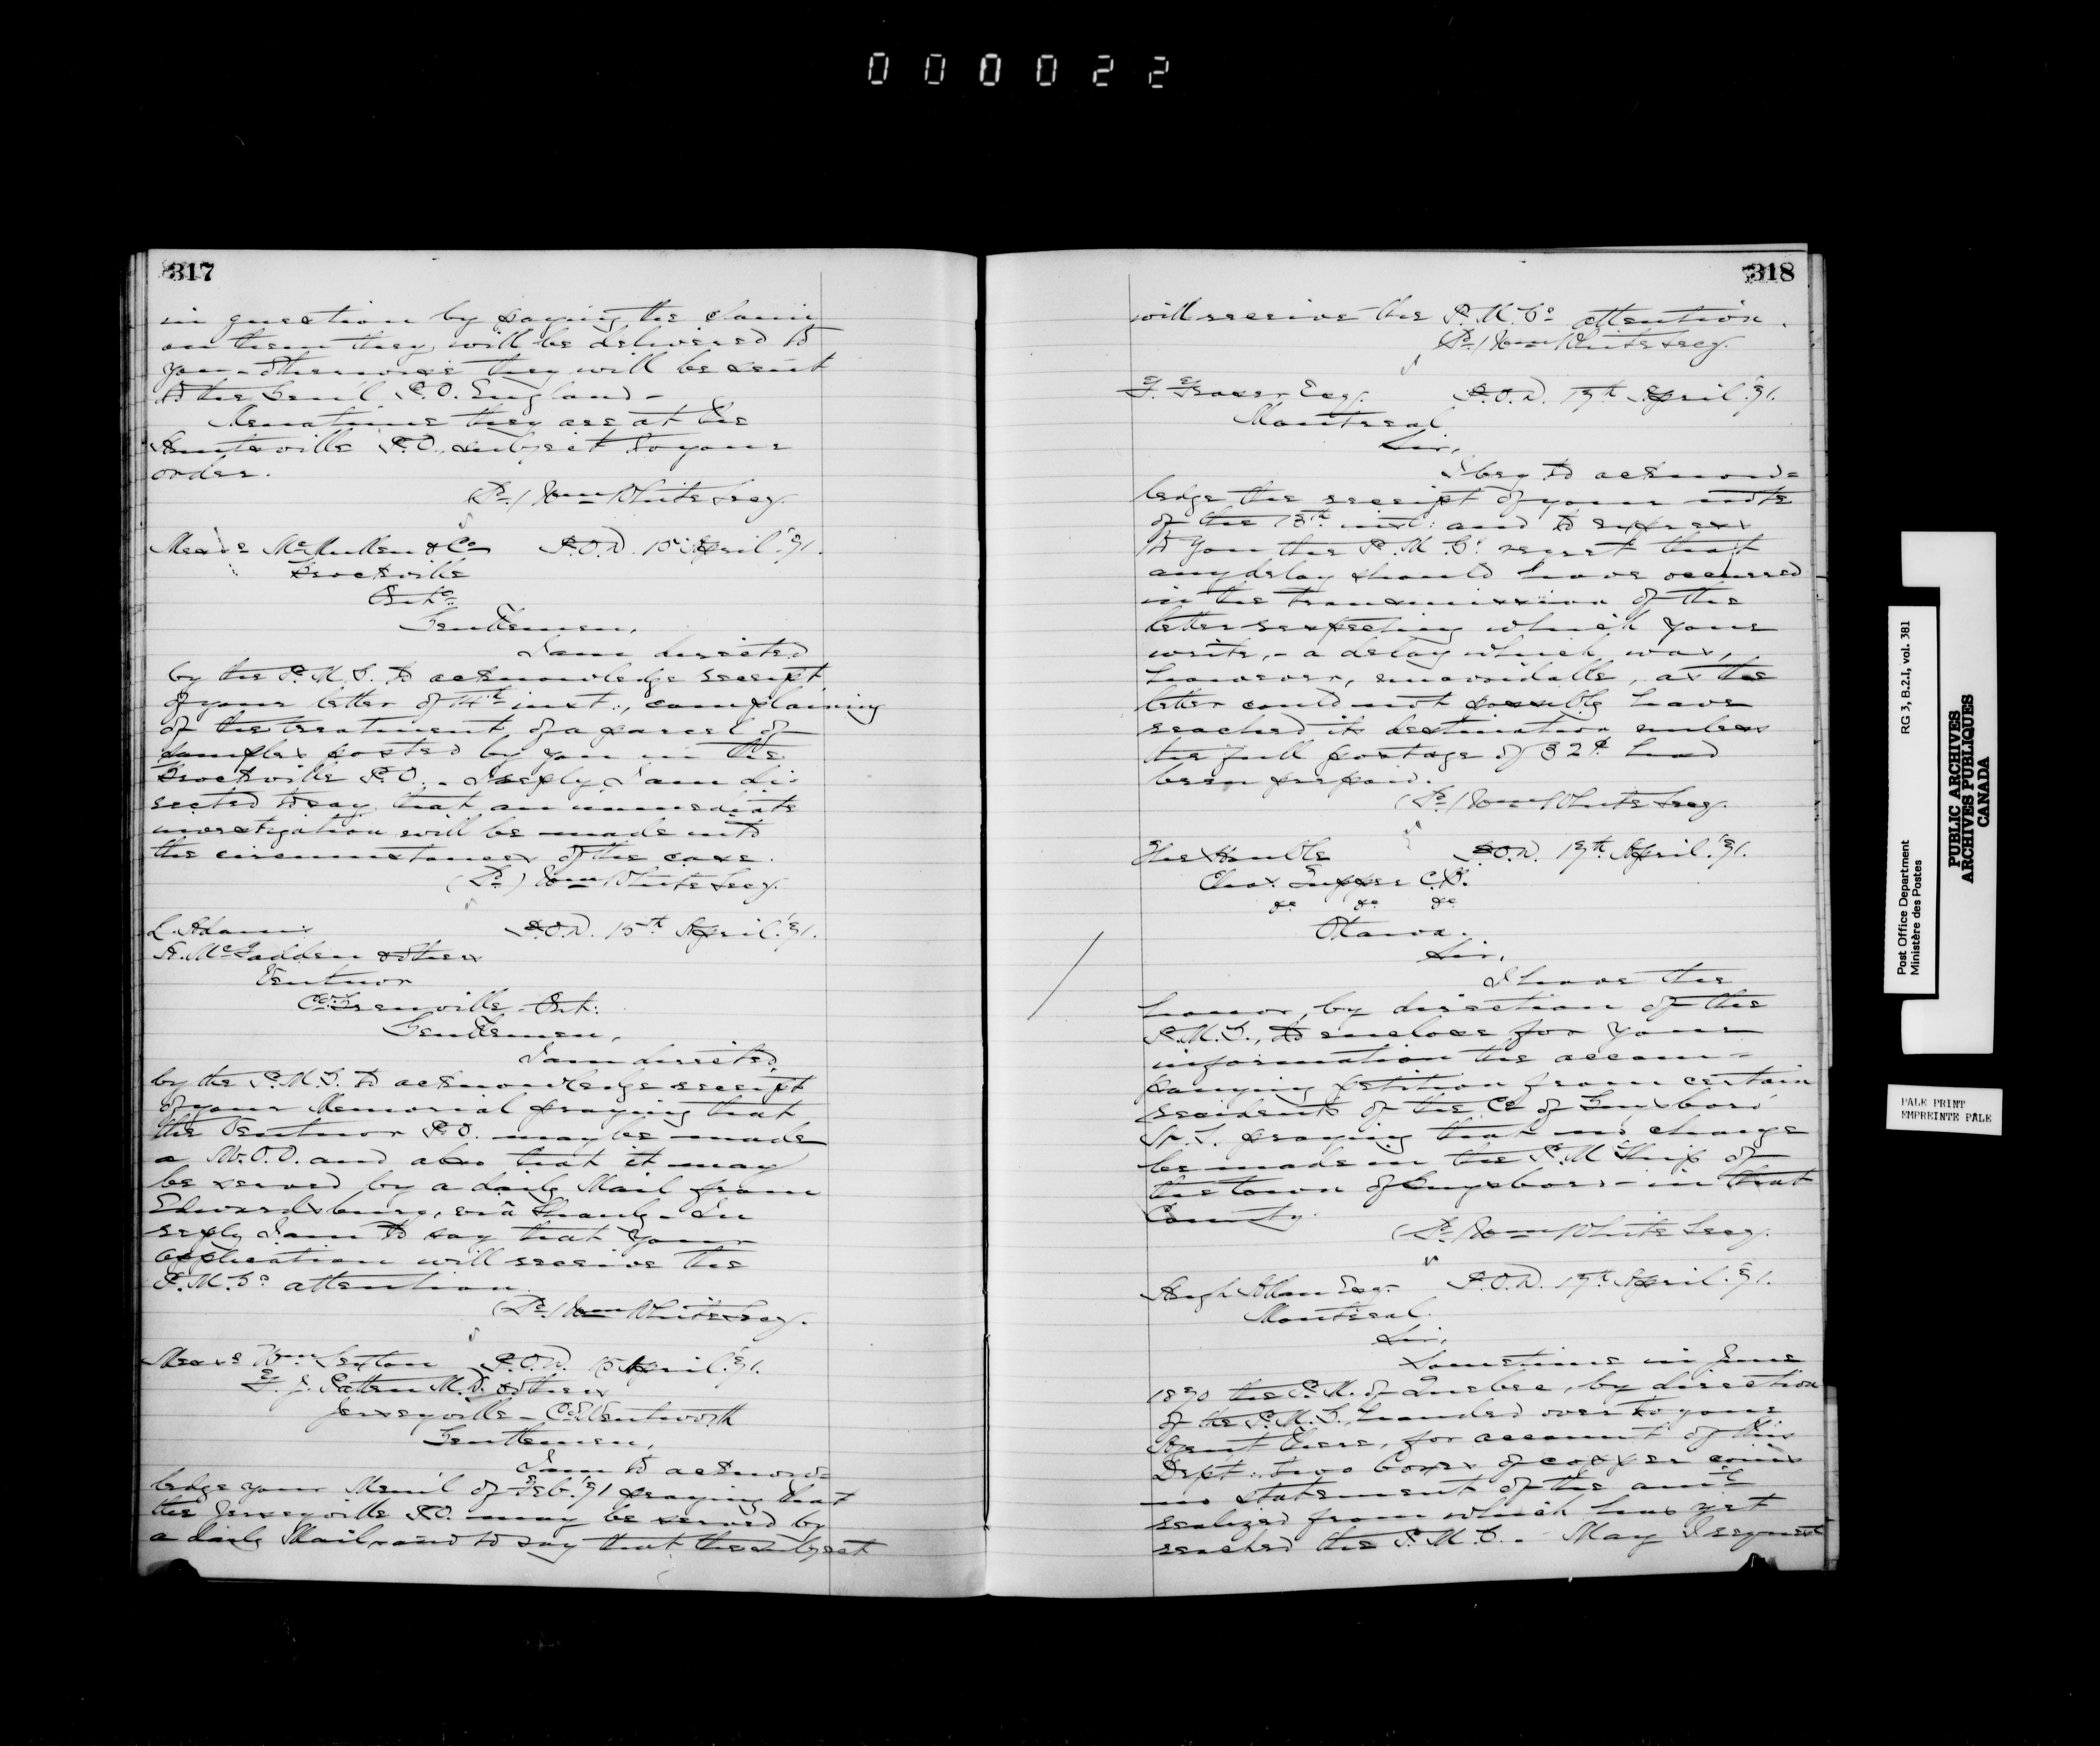 000022
317
in question by paying the claim
on them they will be delivered to
you - otherwise they will be sent
to the Gen'l P.O. England -
Meantime they are at the
Huntsville P.O. subject to your
order.
(Sd.) Wm White Secy.
Messrs McMullen & Co P.O.D. 15 April '71.
Brockville
Onto
Gentlemen,
I am directed
by the P.M.G. to acknowledge receipt
of your letter of 14th inst., complaining
of the treatment of a parcel of
samples posted by you in the
Brockville P.O. - I reply I am di-
rected to say that an immediate
investigation will be made into
the circumstances of the case.
(Sd) Wm White Secy.
L. Adams P.O.D. 15th April '71.
A. McFadden & others
Ventnor
Co. Grenville - Ont:
Gentlemen,
I am directed
by the P.M.G. to acknowledge receipt
of your Memorial praying that
the Ventnor P.O. may be made
a M.O.O. and also that it may
be served by a daily Mail from
Edwardsburg, viâ - In
reply I am to say that your
application will receive the
P.M.Gs attention
(Sd) Wm White Secy.
Messrs Wm Sexton P.O.D. 15 April '71.
F. J. Patten M.D. & others
Jerseyville - Co. Wentworth
Gentlemen,
I am to acknow-
ledge your Mem'l of Feb. '71 praying that
the Jerseyville P.O. may be served by
a daily Mail, and to say that the subject
318
will receive the P.M.Gs attention.
(Sd) Wm White Secy.
F. Fraser Esq. P.O.D. 17th April '71.
Montreal
Sir,
I beg to acknow=
ledge the receipt of your note
of the 13th inst: and to express
to you the P.M.G's regret that
any delay should have occurred
in the transmission of the
letter respecting which your
write, - a delay which was,
however, unavoidable, as the
letter could not possible have
reached its destination unless
the full postage of 32¢ had
been prepaid.
(Sd) Wm White Secy.
The Honble P.O.D. 17th April '71.
Chas Tupper C.B.
&c &c &c
Ottawa.
Sir,
I have the
honor, by direction of the
P.M.G., to enclose for your
information the accom-
panying petition from certain
residents of the Co of Guysboro'
N.S. praying that no change
be made in the P.M.Ship of
the town of Guysboro - in that
County.
(Sd) Wm White Secy.
Hugh Allan Esq. P.O.D. 17th April '71.
Montreal.
Sir,
Sometime in June
1870 the P.M. of Quebec, by direction
of the P.M.G. handed over to your
Agent there, for account of this
Dept. two boxes of copper coins
no statement of the amt
realized from which has yet
reached the P.M.G. - May I request
Post Office Department
Ministère des Postes
RG 3, B.2.1, vol. 381
PUBLIC ARCHIVES
ARCHIVES PUBLIQUES
CANADA
PALE PRINT
EMPREINTE PALE